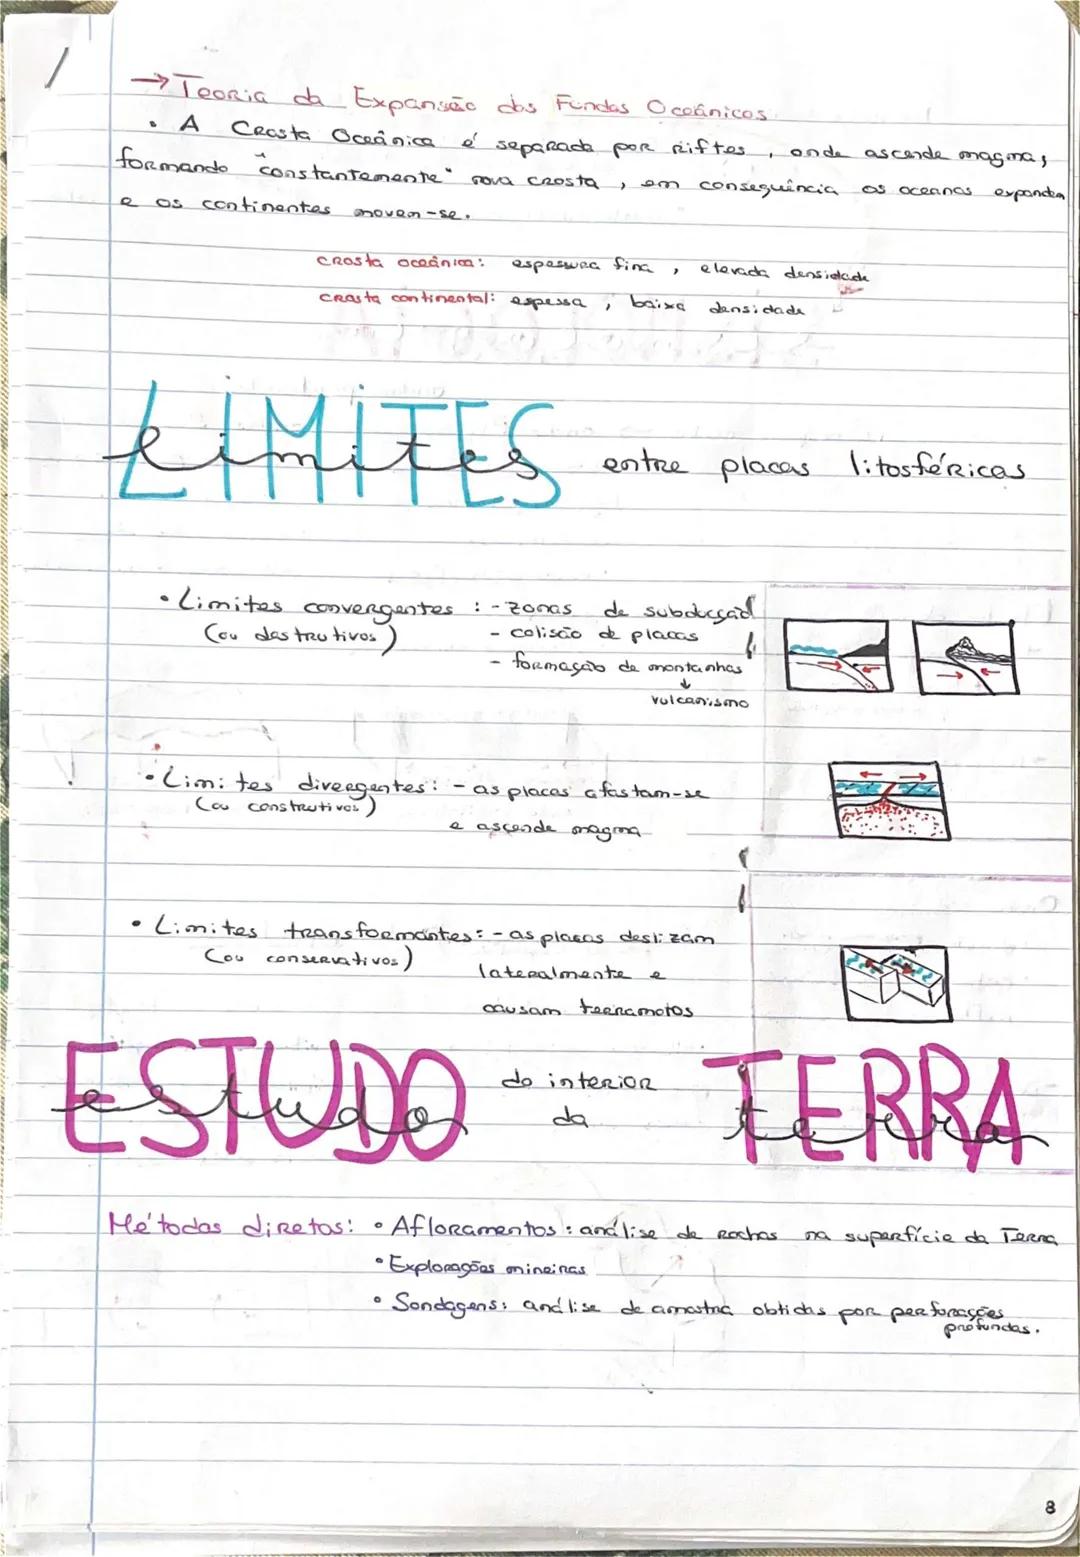 → Teoria da Expansão dos Fundos Oceânicos
• A Crosta Oceânica é separada por riftes, onde ascende magma,
formando "constantemente" nova crosta, em consequência os oceanos expandem
e os continentes movem-se.
crosta oceânica: espessura fina, elevada densidade
crosta continental: espessa, baixa densidade
LIMITES
limites entre placas litosféricas
• Limites convergentes : - zonas de subducção
(ou destrutivos) - colisão de placas
- formação de montanhas
↓
vulcanismo
• Limites divergentes: - as placas afastam-se
(ou construtivos)
e ascende magma
• Limites transformantes: - as placas deslizam
(ou conservativos) lateralmente e
causam terramotos
ESTUDO do interior TERRA
estudo da terra
Métodos diretos: • Afloramentos: análise de rochas na superfície da Terra
• Explorações mineiras
• Sondagens: análise de amostra obtidas por perfurações
profundas.
8